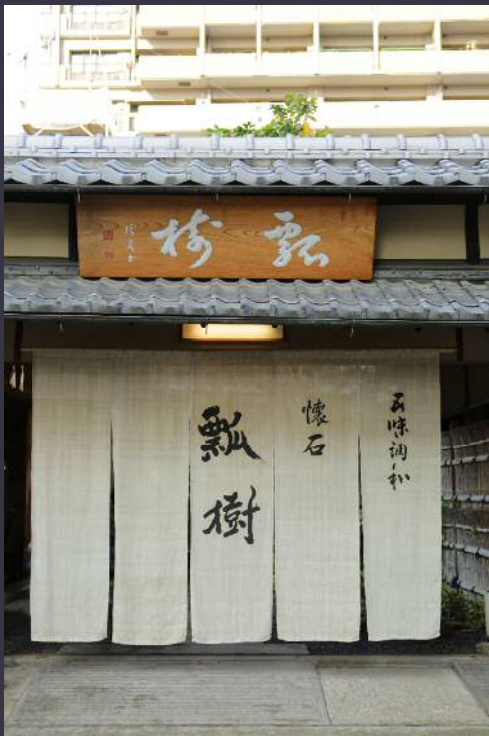 瓢樹
五味調和
懐石
瓢樹